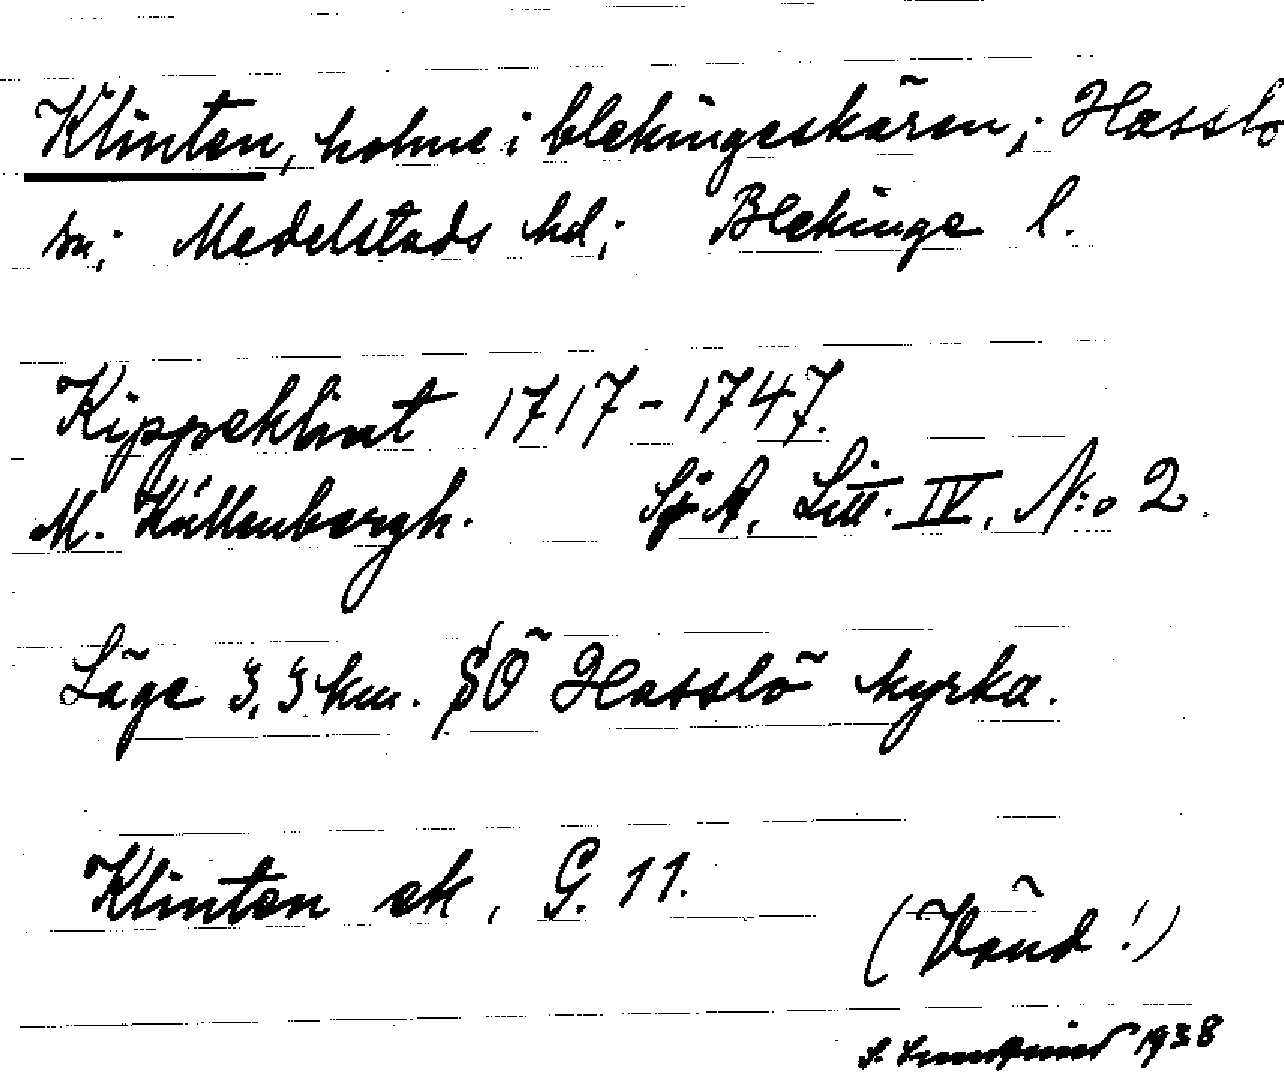 Klinten, holme i blekingeskären; Hasslö
sn; Medelstads hd; Blekinge l.
Kippeklint 1717-1747.
M. Küllenbergh. Sj.A, Litt. IV, N:o 2.
Läge 3,3 km. SÖ Hasslö kyrka.
Klinten ek, G. 11.
(Vänd!)
S. 1938